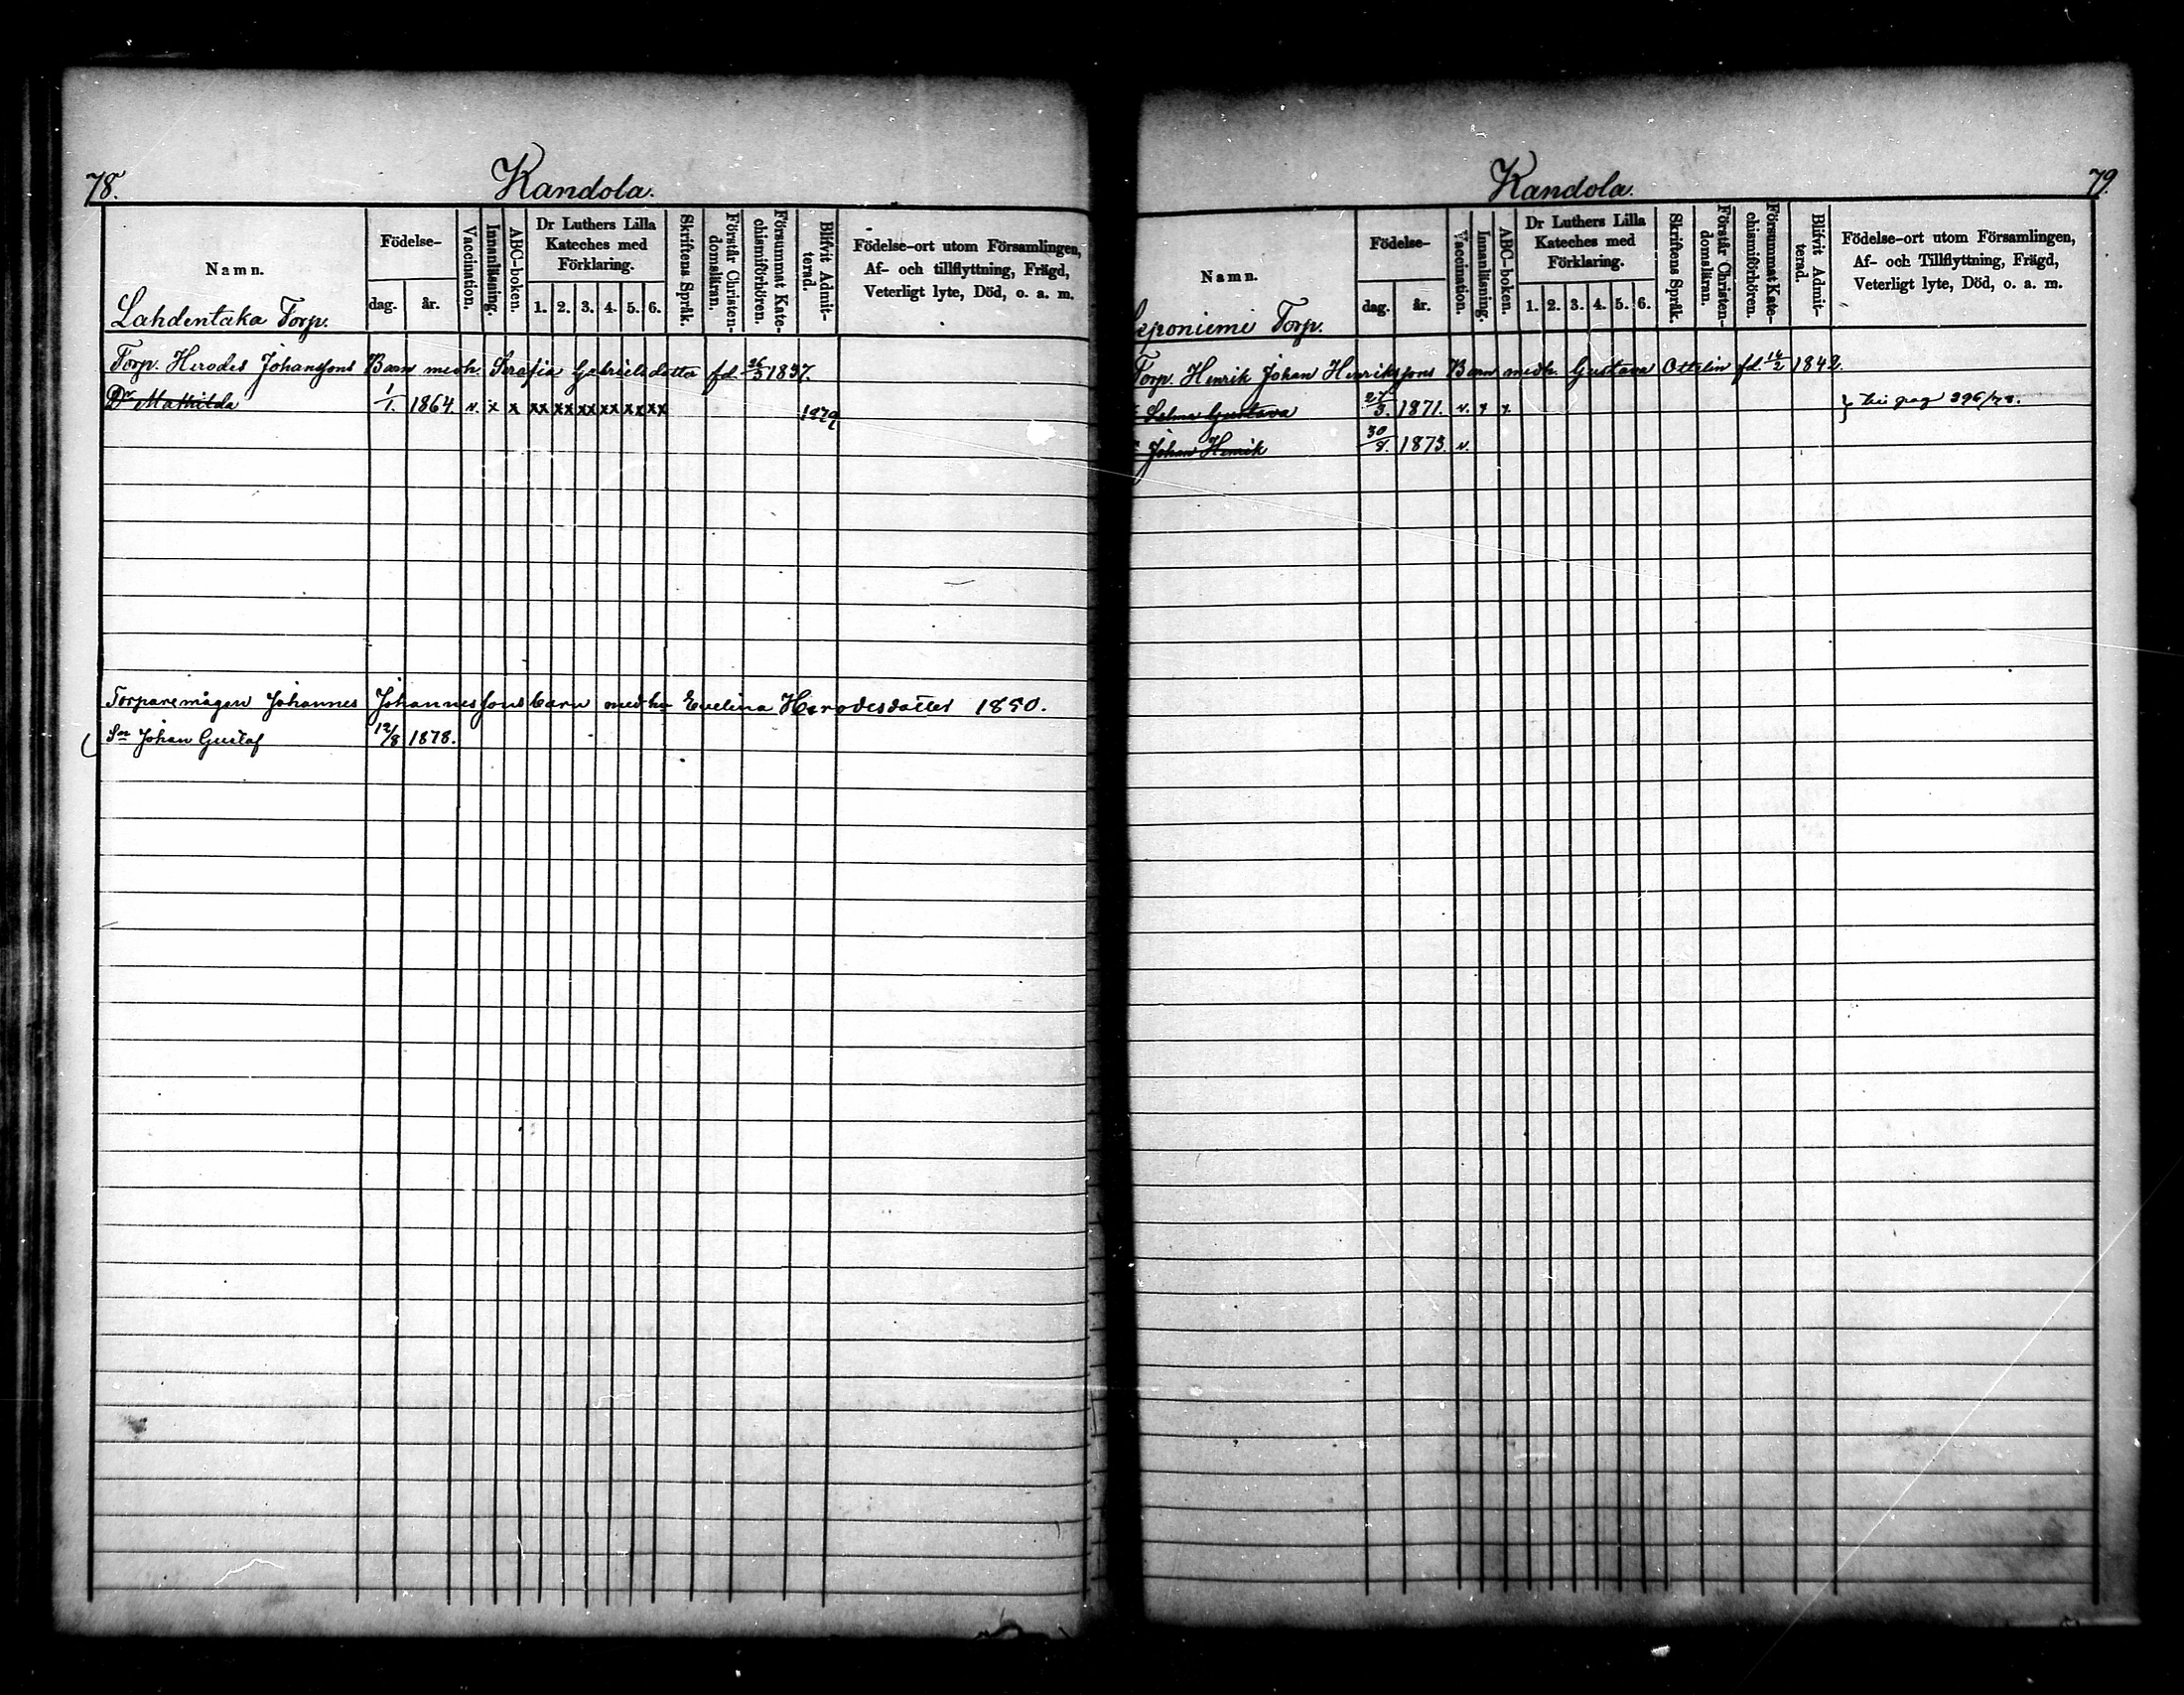 78.
Kandola.
Namn.
Födelse-
dag. år.
Vaccination.
Innanläsning.
ABC-boken.
Dr Luthers Lilla
Kateches med
Förklaring.
1. 2. 3. 4. 5. 6.
Skriftens Språk.
Förstår Christen-
domsläran.
Försummat Kate-
chismiförhören.
Blifvit Admit-
terad.
Födelse-ort utom Församlingen,
Af- och tillflyttning, Frägd,
Veterligt lyte, Död, o. a. m.
Lahdentaka Torp.
Torp. Herodes Johanssons Barn med h. Serafia Gabrielsdotter fd. 26/3 1837.
Dr Mathilda 1/1. 1864. v. x x xx xx xx xx xx xx 1879
Torparemågen Johannes Johannessons barn med hu Evelina Herodesdotter 1850.
Son Johan Gustaf 12/8 1878.
Kandola.
79.
Namn.
Födelse-
dag. år.
Vaccination.
Innanläsning.
ABC-boken.
Dr Luthers Lilla
Kateches med
Förklaring.
1. 2. 3. 4. 5. 6.
Skriftens Språk.
Förstår Christen-
domsläran.
Försummat Kate-
chismiförhören.
Blifvit Admit-
terad.
Födelse-ort utom Församlingen,
Af- och Tillflyttning, Frägd,
Veterligt lyte, Död, o. a. m.
eponiemi Torp.
Torp. Henrik Johan Henrikssons Barn med h. Gustava Ottelin fd. 14/2 1842.
Selma Gustava 27/3. 1871. v. x x. } pag 396
Johan Henrik 30/8. 1873. v.